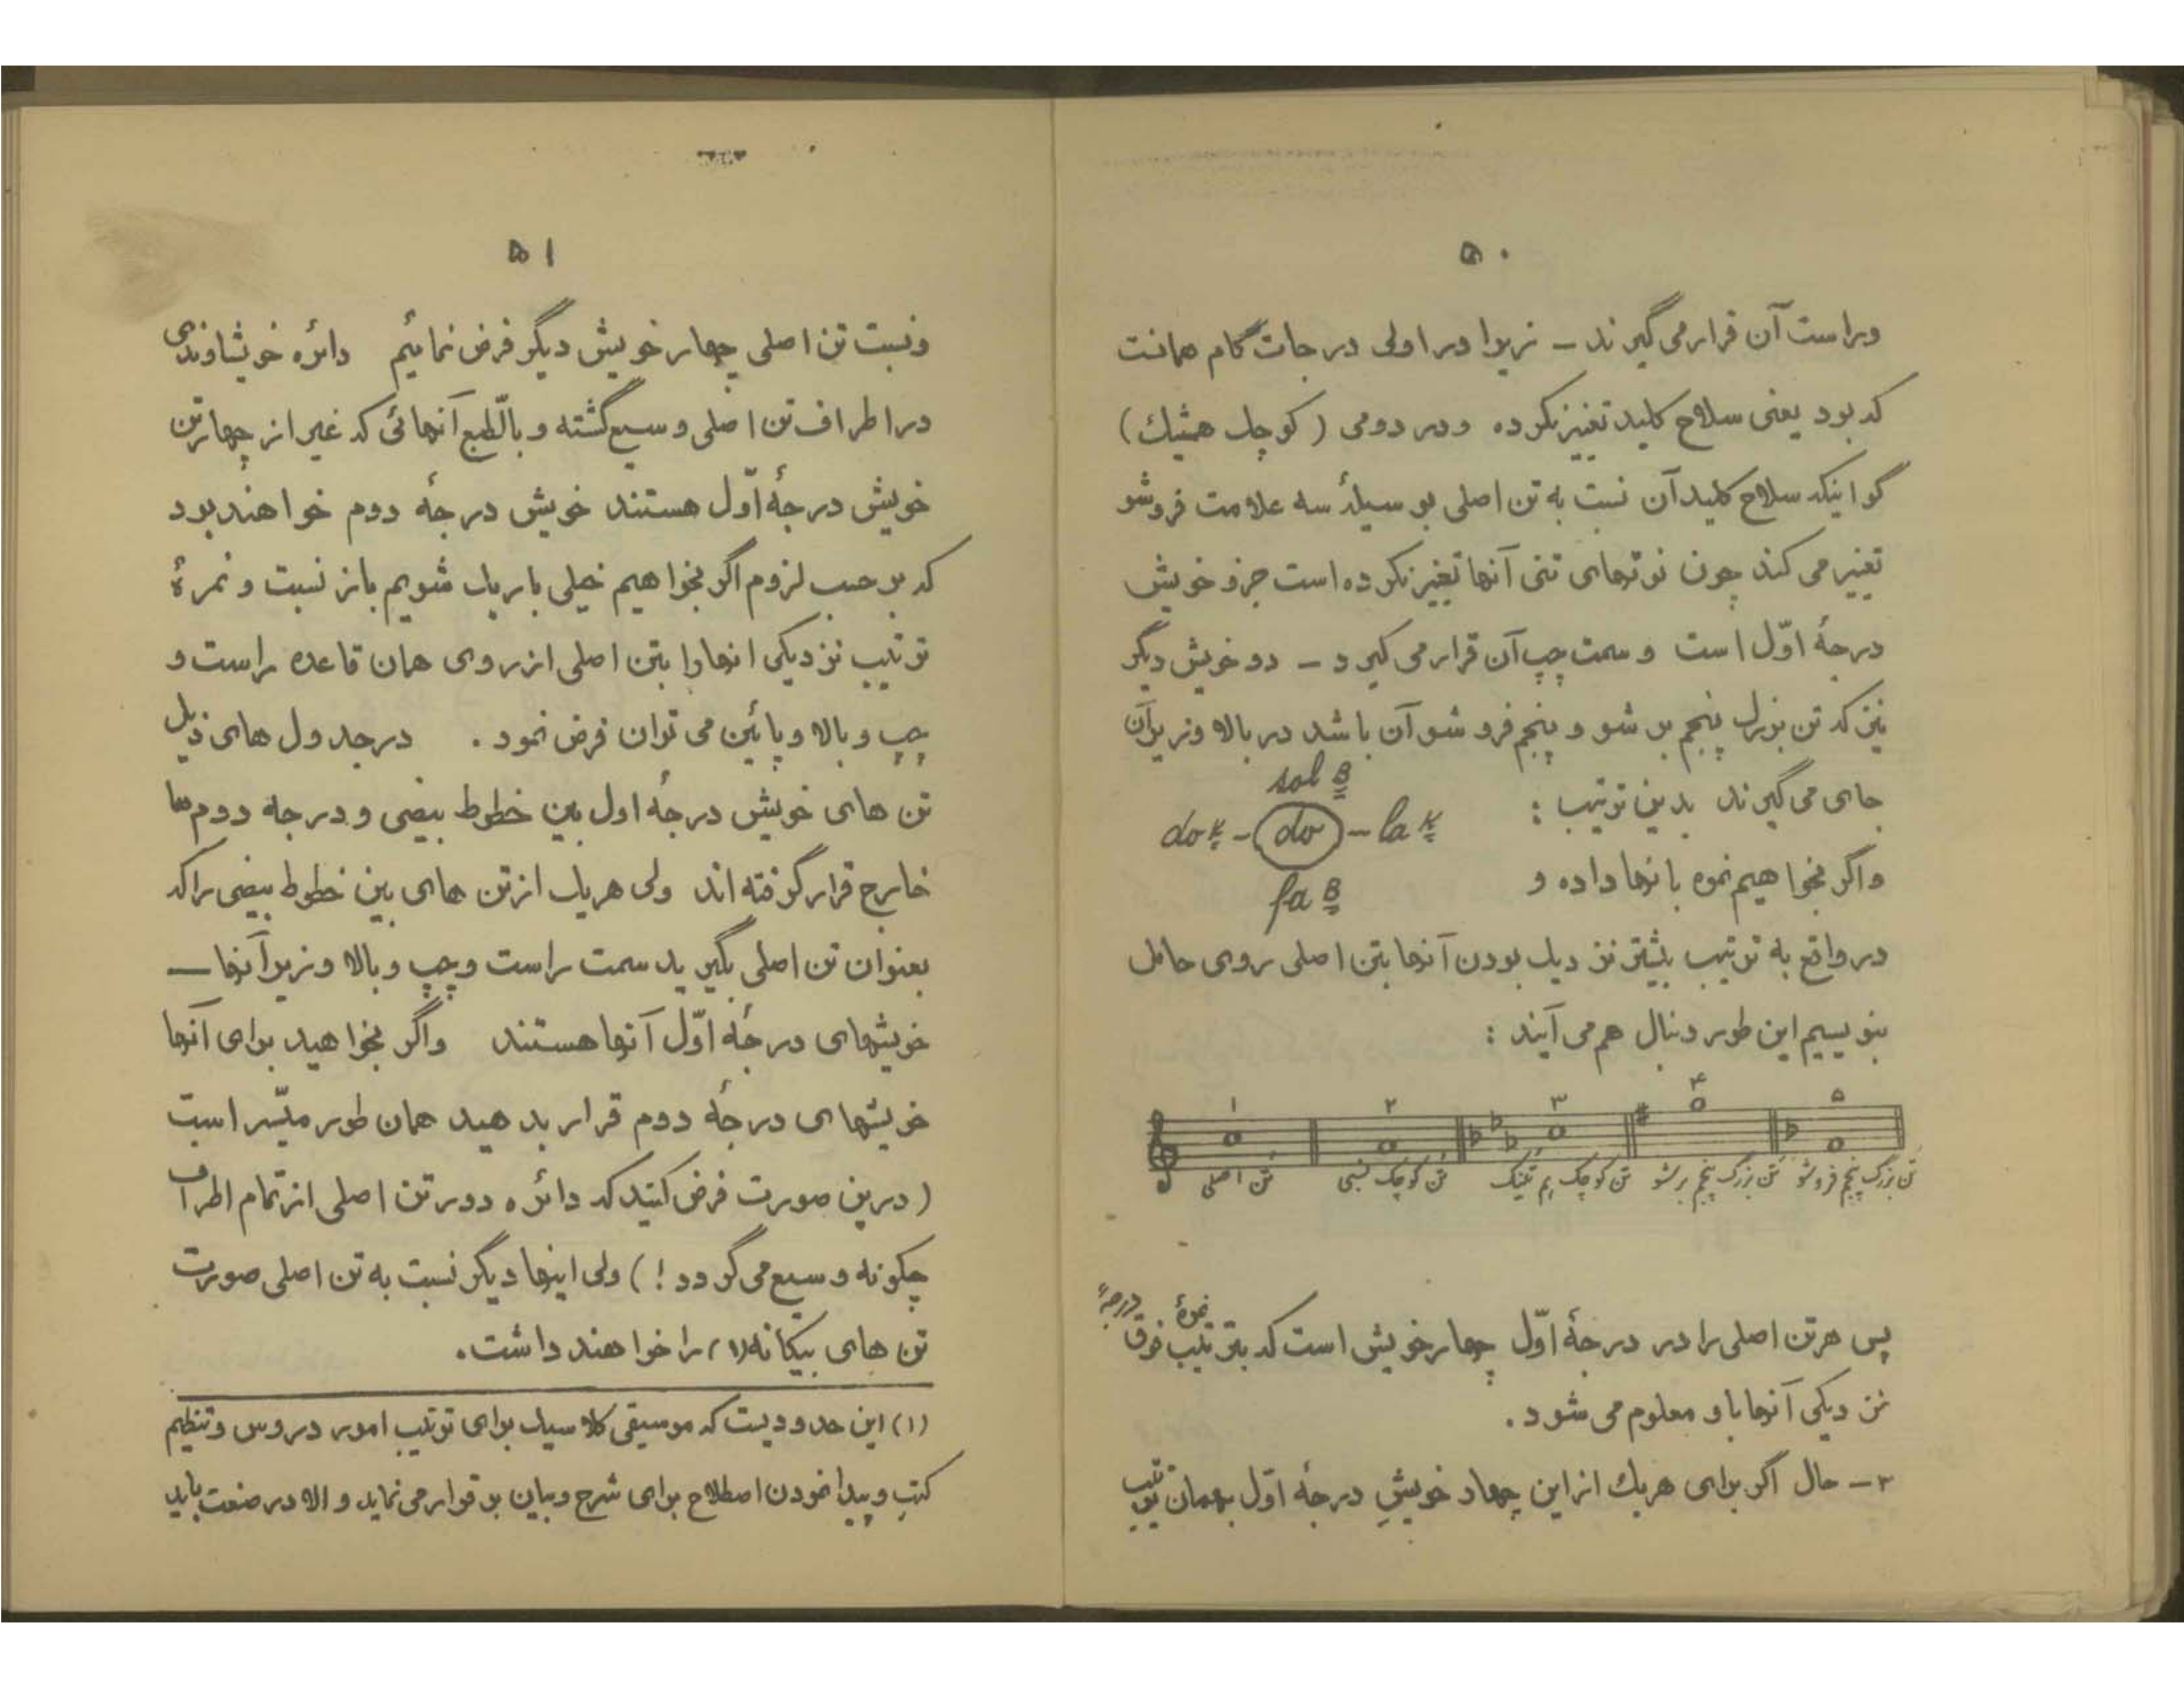 ۵۰
وراست آن قرار می گیرند – زیرا در اولی درجات گام همانست
که بود یعنی سلاح کلید تغییر نکرده و در دومی (کوچک همتنیک)
گو اینکه سلاح کلید آن نسبت به تن اصلی بوسیلهٔ سه علامت فروشو
تغییر می کند چون نوتهای تنی آنها تغییر نکرده است جزو خویش
درجهٔ اوّل است و سمت چپ آن قرار می گیرد – دو خویش دیگر
نیز که تن بزرگ پنجم بر شو و پنجم فروشو آن باشد در بالا و زیر آن
جای می گیرند بدین ترتیب :
sol B
do K - do - la K
fa B
واگر بخواهیم نمره بآنها داده و
در واقع به ترتیب بیشتر نزدیک بودن آنها بتن اصلی روی حامل
بنویسیم این طور دنبال هم می آیند :
۱ ۲ ۳ ۴ ۵
تن اصلی تن کوچک نسبی تن کوچک هم تنیک تن بزرگ پنجم برشو تن بزرگ پنجم فروشو
پس هر تن اصلی را در درجهٔ اوّل چهار خویش است که بترتیب نمرهٔ فوق درجهٔ
نزدیکی آنها باو معلوم می شود .
۲ – حال اگر برای هریک از این چهار خویشِ درجهٔ اوّل بهمان ترتیب
۵۱
ونسبت تن اصلی چهار خویش دیگر فرض نمائیم دائره خویشاوندی
در اطراف تن اصلی وسیع گشته و بالطّبع آنهائی که غیر از چهار تن
خویش درجهٔ اوّل هستند خویش درجهٔ دوم خواهند بود
که بر حسب لزوم اگر بخواهیم خیلی باریک شویم باز نسبت و نمرهٔ
ترتیب نزدیکی انها را بتن اصلی از روی همان قاعده راست و
چپ و بالا و پائین می توان فرض نمود . در جدول های ذیل
تن های خویش درجهٔ اول بین خطوط بیضی و درجه دوم ها
خارج قرار گرفته اند ولی هریک از تن های بین خطوط بیضی را که
بعنوان تن اصلی بگیرید سمت راست و چپ و بالا و زیر آنها –
خویشهای درجهٔ اوّل آنها هستند واگر بخواهید برای آنها
خویشهای درجهٔ دوم قرار بدهید همان طور میسّر است
(درین صورت فرض کنید که دائره دور تن اصلی از تمام اطراف
چگونه وسیع می گردد !) ولی اینها دیگر نسبت به تن اصلی صورت
تن های بیگانه(۱) را خواهند داشت.
(۱) این حدودیست که موسیقی کلاسیک برای ترتیب امور دروس و تنظیم
کتب و پیدا نمودن اصطلاح برای شرح و بیان بر قرار می نماید و الا در صنعت باید